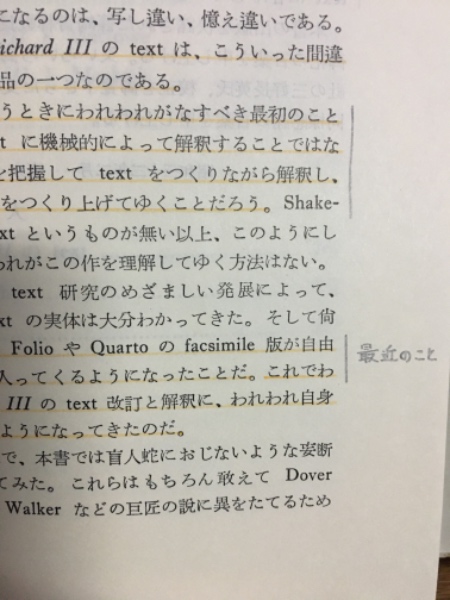 になるのは、写し違い、憶え違いである。
ichard III の text は、こういった間違
品の一つなのである。
うときにわれわれがなすべき最初のこと
t に機械的によって解釈することではな
を把握して text をつくりながら解釈し、
をつくり上げてゆくことだろう。Shake-
xt というものが無い以上、このようにし
われがこの作を理解してゆく方法はない。
text 研究のめざましい発展によって、
xt の実体は大分わかってきた。そして尚
Folio や Quarto の facsimile 版が自由
入ってくるようになったことだ。これでわ
最近のこと
III の text 改訂と解釈に、われわれ自身
ようになってきたのだ。
で、本書では盲人蛇におじないような妄断
てみた。これらはもちろん敢えて Dover
Walker などの巨匠の説に異をたてるため